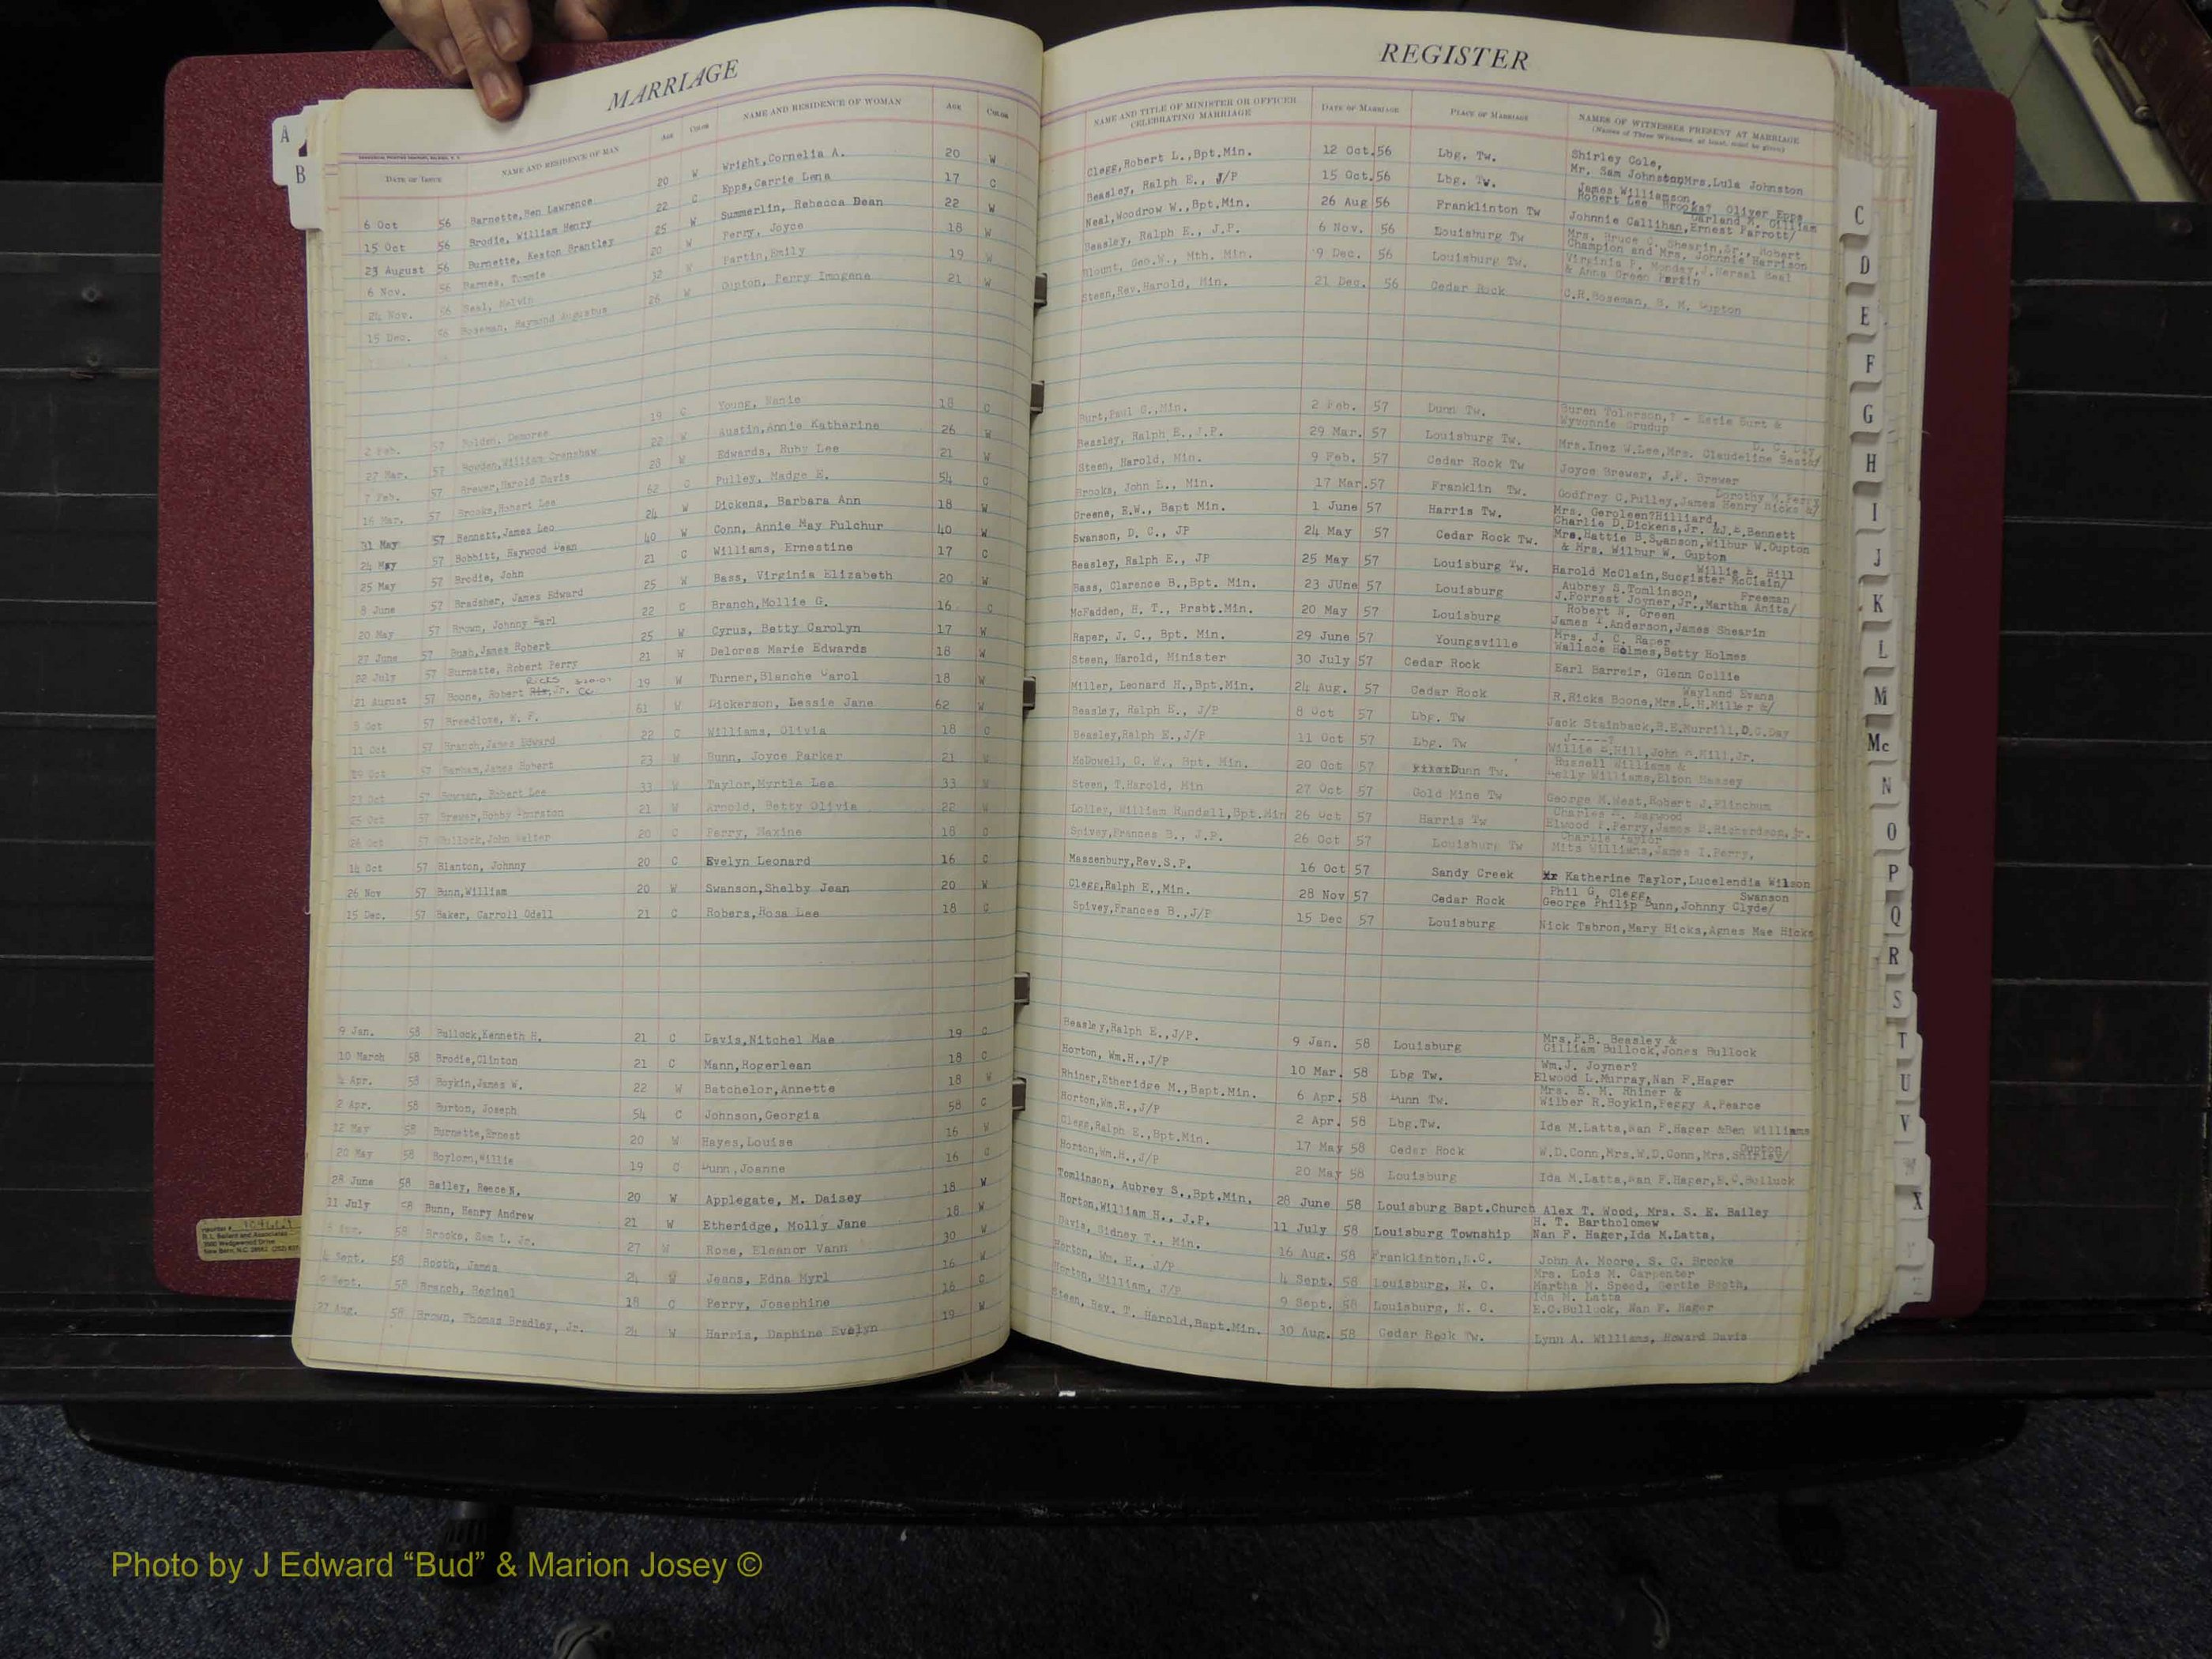 MARRIAGE
REGISTER
DATE OF ISSUE NAME AND RESIDENCE OF MAN AGE COLOR NAME AND RESIDENCE OF WOMAN AGE COLOR NAME AND TITLE OF MINISTER OR OFFICER CELEBRATING MARRIAGE DATE OF MARRIAGE PLACE OF MARRIAGE NAMES OF WITNESSES PRESENT AT MARRIAGE
(Names of Three Witnesses, at least, must be given)
6 Oct 56 Barnette,Ben Lawrence 20 W Wright,Cornelia A. 20 W Clegg,Robert L.,Bpt.Min. 12 Oct.56 Lbg. Tw. Shirley Cole, Mr. Sam Johnston,Mrs.Lula Johnston
15 Oct 56 Brodie, William Henry 22 C Epps,Carrie Lena 17 C Beasley, Ralph E., J/P 15 Oct.56 Lbg. Tw. James Williamson, Robert Lee Brooks? Oliver Epps
23 August 56 Burnette, Keston Brantley 25 W Summerlin, Rebecca Dean 22 W Neal,Woodrow W.,Bpt.Min. 26 Aug 56 Franklinton Tw Garland M. Gilliam Johnnie Callihan,Ernest Parrott/
6 Nov. 56 Barnes, Tommie 20 W Perry, Joyce 18 W Beasley, Ralph E., J.P. 6 Nov. 56 Louisburg Tw Mrs. Bruce C. Shearin,Sr., Robert Champion and Mrs. Johnnie Harrison
24 Nov. 56 Beal, Melvin 32 W Partin,Emily 19 W Blount, Geo.W., Mth. Min. 9 Dec. 56 Louisburg Tw. Virginia P. Monday,J.Hersal Beal & Anna Green Partin
15 Dec. 56 Boseman, Raymond Augustus 26 W Gupton, Perry Imogene 21 W Steen,Rev.Harold, Min. 21 Dec. 56 Cedar Rock C.R.Boseman, B. M. Gupton
2 Feb. 57 19 C Young, Nanie 18 C Burt,Paul G.,Min. 2 Feb. 57 Dunn Tw. Buren Tolerson,? - Essie Burt & Wyvonnie Crudup
27 Mar. 57 Bowden,William Crenshaw 22 W Austin,Annie Katherine 26 W Beasley, Ralph E.,J.P. 29 Mar. 57 Louisburg Tw. D. C. Day Mrs.Inez W.Lee,Mrs. Claudeline Beste/
7 Feb. 57 Brewer,Harold Davis 28 W Edwards, Ruby Lee 21 W Steen, Harold, Min. 9 Feb. 57 Cedar Rock Tw Joyce Brewer, J.P. Brewer
16 Mar. 57 Brooks,Robert Lee 62 C Pulley, Madge E. 54 C Brooks, John L., Min. 17 Mar.57 Franklin Tw. Dorothy M.Perry Godfrey C.Pulley,James Henry Hicks &/
31 May 57 Bennett,James Leo 24 W Dickens, Barbara Ann 18 W Greene, E.W., Bapt Min. 1 June 57 Harris Tw. Mrs. Geroleen?Hilliard, Charlie D.Dickens,Jr. &J.E.Bennett
24 May 57 Bobbitt, Haywood Dean 40 W Conn, Annie May Fulchur 40 W Swanson, D. C., JP 24 May 57 Cedar Rock Tw. Mrs.Hattie B.Swanson,Wilbur W.Gupton & Mrs. Wilbur W. Gupton
25 May 57 Brodie, John 21 C Williams, Ernestine 17 C Beasley, Ralph E., JP 25 May 57 Louisburg Tw. Willie E. Hill Harold McClain,Sucgister McClain/
8 June 57 Bradsher, James Edward 25 W Bass, Virginia Elizabeth 20 W Bass, Clarence B.,Bpt. Min. 23 JUne 57 Louisburg Aubrey S.Tomlinson, Freeman J.Forrest Joyner,Jr.,Martha Anits/
20 May 57 Brown, Johnny Earl 22 C Branch,Mollie G. 16 C McFadden, H. T., Prsbt.Min. 20 May 57 Louisburg Robert N. Green James T.Anderson,James Shearin
27 June 57 Bush,James Robert 25 W Cyrus, Betty Carolyn 17 W Raper, J. C., Bpt. Min. 29 June 57 Youngsville Mrs. J. C. Raper Wallace Holmes,Betty Holmes
22 July 57 Burnette, Robert Perry 21 W Delores Marie Edwards 18 W Steen, Harold, Minister 30 July 57 Cedar Rock Earl Barreir, Glenn Collie
21 August 57 Boone, Robert Ricks Jr. CC 19 W Turner,Blanche Carol 18 W Miller, Leonard H.,Bpt.Min. 24 Aug. 57 Cedar Rock Wayland Evans R.Ricks Boone,Mrs.L.H.Miller &/
3 Oct 57 Breedlove, W. F. 61 W Dickerson, Lessie Jane 62 W Beasley, Ralph E., J/P 8 Oct 57 Lbg. Tw Jack Stainback,B.E.Murrill,D.C.Day
11 Oct 57 Branch,James Edward 22 C Williams, Olivia 18 C Beasley,Ralph E.,J/P 11 Oct 57 Lbg. Tw J-----? Willie E.Hill,John E.Hill,Jr.
57 Barham,James Robert 23 W Bunn, Joyce Parker 21 W McDowell, G. W., Bpt. Min. 20 Oct 57 Dunn Tw. Russell Williams & Williams,Elton Massey
23 Oct 57 Bowman, Robert Lee 33 W Taylor,Myrtle Lee 33 W Steen, T.Harold, Min 27 Oct 57 Gold Mine Tw George M.West,Robert J.Flinchum
25 Oct 57 Brewer,Bobby Thurston 21 W Arnold, Betty Olivia 22 W Lolley, William Randell,Bpt.Min 26 Oct 57 Harris Tw Charles Hagwood Elwood F.Perry,James B.Richardson,Jr.
26 Oct 57 Bullock,John Walter 20 C Perry, Maxine 18 C Spivey,Frances B., J.P. 26 Oct 57 Louisburg Tw Charlie Taylor Mits Williams,James I.Perry,
14 Oct 57 Blanton, Johnny 20 C Evelyn Leonard 16 C Massenbury,Rev.S.P. 16 Oct 57 Sandy Creek Katherine Taylor,Lucelendia Wilson
26 Nov 57 Bunn,William 20 W Swanson,Shelby Jean 20 W Clegg,Ralph E.,Min. 28 Nov 57 Cedar Rock Phil G. Clegg, Swanson George Philip Bunn,Johnny Clyde/
15 Dec. 57 Baker, Carroll Odell 21 C Robers,Rosa Lee 18 C Spivey,Frances B.,J/P 15 Dec 57 Louisburg Nick Tabron,Mary Hicks,Agnes Mae Hicks
9 Jan. 58 Bullock,Kenneth H. 21 C Davis,Nitchel Mae 19 C Beasley,Ralph E.,J/P. 9 Jan. 58 Louisburg Mrs.P.B. Beasley & Gilliam Bullock,Jones Bullock
10 March 58 Brodie,Clinton 21 C Mann,Rogerlean 18 C Horton, Wm.H.,J/P 10 Mar. 58 Lbg Tw. Wm.J. Joyner? Elwood L.Murray,Nan F.Hager
4 Apr. 58 Boykin,James W. 22 W Batchelor,Annette 18 W Rhiner,Etheridge M.,Bapt.Min. 6 Apr. 58 Dunn Tw. Mrs. E. M. Rhiner & Wilber R.Boykin,Peggy A.Pearce
2 Apr. 58 Burton, Joseph 54 C Johnson,Georgia 58 C Horton,Wm.H.,J/P 2 Apr. 58 Lbg.Tw. Ida M.Latta,Nan F.Hager &Ben Williams
12 May 58 Burnette,Ernest 20 W Hayes,Louise 16 W Clegg,Ralph E.,Bpt.Min. 17 May 58 Cedar Rock Gupton W.D.Conn,Mrs.W.D.Conn,Mrs.Shirley/
20 May 58 Boylorn,Willie 19 C Dunn,Joanne 16 C Horton,Wm.H.,J/P 20 May 58 Louisburg Ida M.Latta,Nan F.Hager,E.C.Bulluck
28 June 58 Bailey, Reece N. 20 W Applegate, M. Daisey 18 W Tomlinson, Aubrey S.,Bpt.Min. 28 June 58 Louisburg Bapt.Church Alex T. Wood, Mrs. S. E. Bailey
11 July 58 Bunn, Henry Andrew 21 W Etheridge, Molly Jane 18 W Horton,William H., J.P. 11 July 58 Louisburg Township H. T. Bartholomew Nan F. Hager,Ida M.Latta,
58 Brooks, Sam L. Jr. 27 W Rose, Eleanor Vann 30 W Davis, Sidney T., Min. 16 Aug. 58 Franklinton,N.C. John A. Moore, S. C. Brooke
4 Sept. 58 Booth, James 24 W Jeans, Edna Myrl 16 W Horton, Wm. H., J/P 4 Sept. 58 Louisburg, N. C. Mrs. Lois M. Carpenter Martha M. Speed, Gertie Booth,
9 Sept. 58 Branch, Reginel 18 C Perry, Josephine 16 C Horton, William, J/P 9 Sept. 58 Louisburg, N. C. Ida M. Latta E.C.Bullock, Nan F. Hager
27 Aug. 58 Brown, Thomas Bradley, Jr. 24 W Harris, Daphine Evelyn 19 W Steen, Rev. T. Harold,Bapt.Min. 30 Aug. 58 Cedar Rock Tw. Lynn A. Williams, Howard Davis
A
B
C
D
E
F
G
H
I
J
K
L
M
Mc
N
O
P
Q
R
S
T
U
V
W
X
Y
Z
Photo by J Edward “Bud” & Marion Josey ©